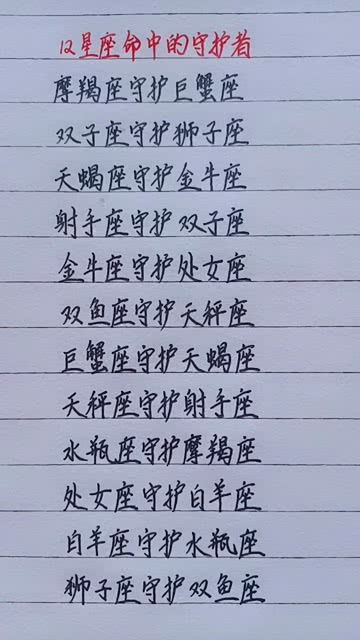 12星座命中的守护者
摩羯座守护巨蟹座
双子座守护狮子座
天蝎座守护金牛座
射手座守护双子座
金牛座守护处女座
双鱼座守护天秤座
巨蟹座守护天蝎座
天秤座守护射手座
水瓶座守护摩羯座
处女座守护白羊座
白羊座守护水瓶座
狮子座守护双鱼座